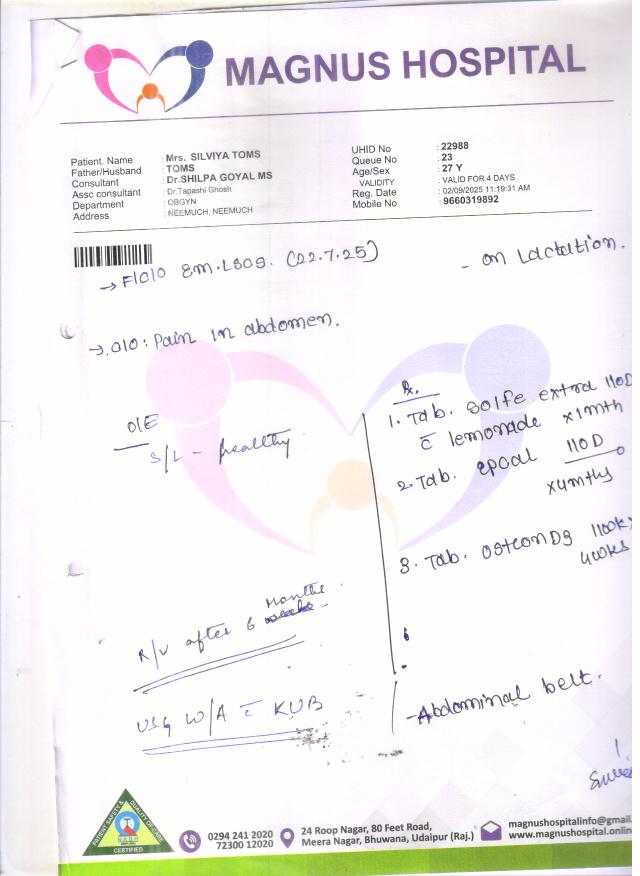 MAGNUS HOSPITAL
Patient. Name : Mrs. SILVIYA TOMS
Father/Husband : TOMS
Consultant : Dr.SHILPA GOYAL MS
Assc consultant : Dr.Tapashi Ghosh
Department : OBGYN
Address : NEEMUCH, NEEMUCH
UHID No : 22988
Queue No : 23
Age/Sex : 27 Y
VALIDITY : VALID FOR 4 DAYS
Reg. Date : 02/09/2025 11:19:31 AM
Mobile No : 9660319892
→ F/C/O Em.LSCS. (22.7.25)
- on Lactation.
→ .C/O : Pain in abdomen.
O/E
S/L - healthy
R/V after 6 Months
USG W/A c̄ KUB
Rx.
1. Tab. Solfe extra 1 OD
c̄ lemonade x 1 mth
2. Tab. 1 OD
x 4 mths
3. Tab.
- Abdominal belt.
PATIENT SAFETY & QUALITY OF CARE
NABH
CERTIFIED
0294 241 2020
72300 12020
24 Roop Nagar, 80 Feet Road,
Meera Nagar, Bhuwana, Udaipur (Raj.)
magnushospitalinfo@gmail.
www.magnushospital.online